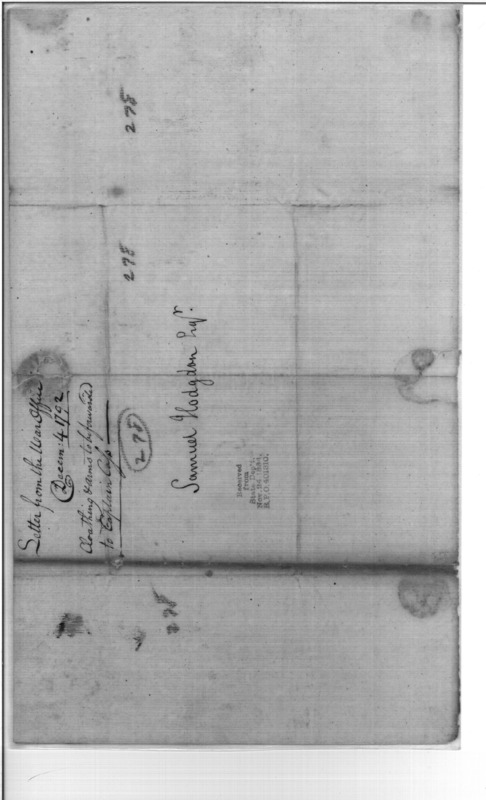 Letter from the War Office
Decem: 4. 1792
Cloathing & arms to be forwarded
to Captain
278
278
278
Samuel Hodgdon Esqr.
Received
from
278